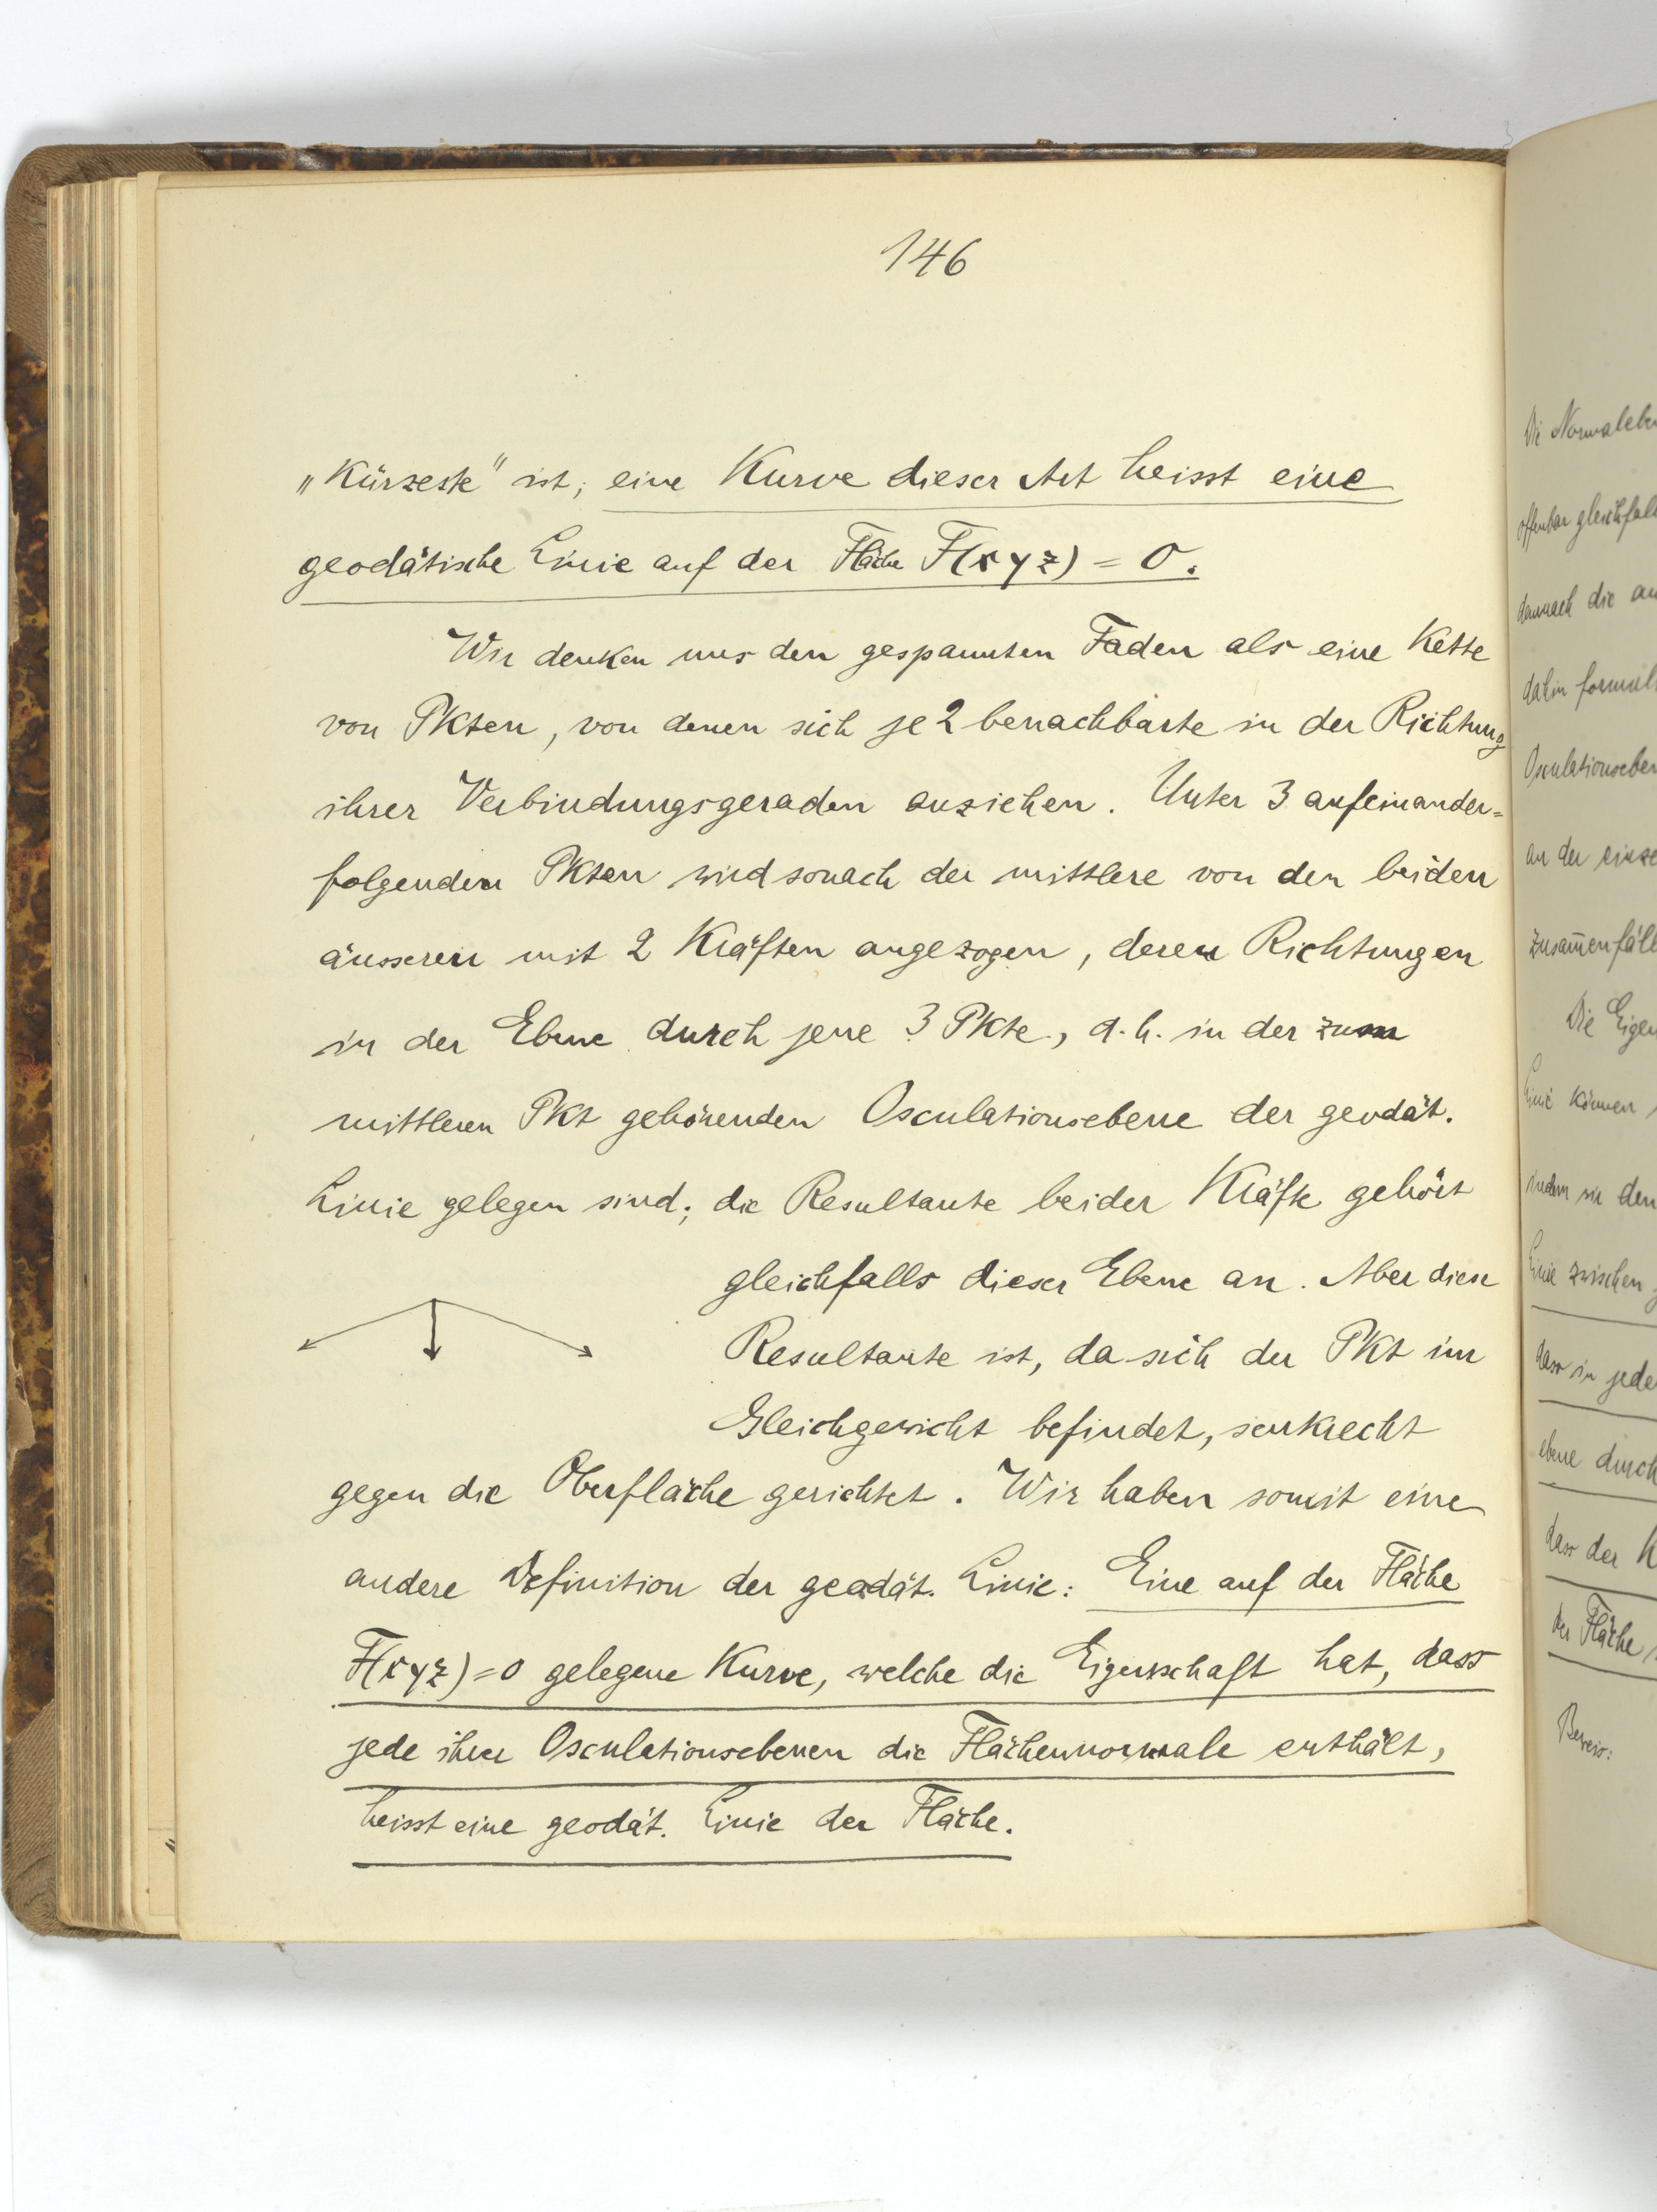 146
„Kürzeste" ist; eine Kurve dieser Art heisst eine
geodätische Linie auf der Fläche F(xyz) = 0.
Wir denken uns den gespannten Faden als eine Kette
von Pkten, von denen sich je 2 benachbarte in der Richtung
ihrer Verbindungsgeraden anziehen. Unter 3 aufeinander=
folgenden Pkten wird sonach der mittlere von den beiden
äusseren mit 2 Kräften angezogen, deren Richtungen
in der Ebene durch jene 3 Pkte, d.h. in der zum
mittleren Pkt gehörenden Osculationsebene der geodät.
Linie gelegen sind; die Resultante beider Kräfte gehört
gleichfalls dieser Ebene an. Aber diese
Resultante ist, da sich der Pkt im
Gleichgewicht befindet, senkrecht
gegen die Oberfläche gerichtet. Wir haben somit eine
andere Definition der geodät. Linie: Eine auf der Fläche
F(xyz)=0 gelegene Kurve, welche die Eigenschaft hat, dass
jede ihrer Osculationsebenen die Flächennormale enthält,
heisst eine geodät. Linie der Fläche.
Die
offenbar
dannach die
dahin
an der
Die
Linie können
indem sie den
Linie zwischen
dass in
ebene durch
dass der
der Fläche
Beweis: